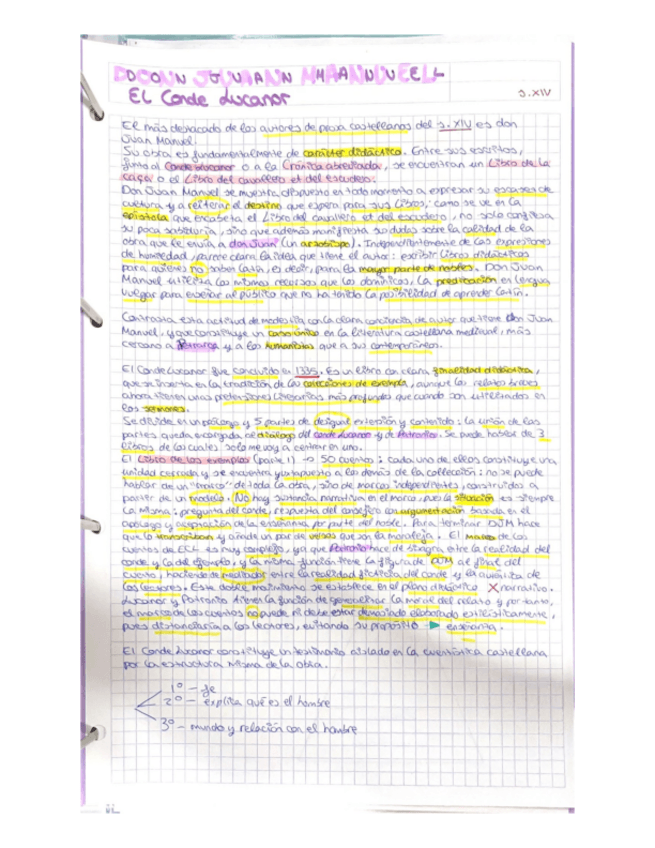 DOCONN JUUANN MHANNUEELL
EL Conde Lucanor
S.XIV
El más destacado de los autores de prosa castellanos del S. XIV es don
Juan Manuel.
Su obra es fundamentalmente de carácter didáctico. Entre sus escritos,
junto al Conde Lucanor o a la Crónica abreviada, se encuentran un Libro de la
caça o el Libro del cavallero et del escudero.
Don Juan Manuel se muestra dispuesto en todo momento a expresar su escasez de
cultura y a reiterar el destino que espera para sus libros, como se ve en la
epístola que encabeza el Libro del cavallero et del escudero, no solo confiesa
su poca sabiduría, sino que además manifiesta su dudas sobre la calidad de la
obra que le envía a don Juan (un arzobispo). Independientemente de las expresiones
de humildad, parece clara la idea que tiene el autor: escribir Libros didácticos
para quienes no saben latín, es decir, para la mayor parte de nobles. Don Juan
Manuel utiliza los mismos recursos que los dominicos, la predicación en lengua
vulgar para enseñar al público que no ha tenido la posibilidad de aprender latín.
Contrasta esta actitud de modestia con la clara conciencia de autor que tiene don Juan
Manuel, y que constituye un caso único en la literatura castellana medieval, más
cercano a Petrarca y a los humanistas que a sus contemporáneos.
El Conde Lucanor fue concluido en 1335. Es un libro con clara finalidad didáctica,
que se inserta en la tradición de las colecciones de exempla, aunque los relatos breves
ahora tienen unas pretensiones literarias más profundas que cuando son utilizados en
los sermones.
Se divide en un prólogo y 5 partes de desigual extensión y contenido: la unión de las
partes queda encargada al diálogo del conde Lucanor y de Patronio. Se puede hablar de 3
libros de los cuales solo me voy a centrar en uno.
El Libro de los exemplos (parte 1) → 50 cuentos: cada uno de ellos constituye una
unidad cerrada y se encuentra yuxtapuesto a los demás de la collección: no se puede
hablar de un "marco" de toda la obra, sino de marcos independientes, construidos a
partir de un modelo. No hay sustancia narrativa en el marco, pues la situación es siempre
la misma: pregunta del conde, respuesta del consejero con argumentación basada en el
apólogo y aceptación de la enseñanza por parte del noble. Para terminar DJM hace
que lo transcriban y añade un par de versos que son la moraleja. El marco de los
cuentos de ECL es muy complejo, ya que Patronio hace de bisagra entre la realidad del
conde y la del ejemplo, y la misma función tiene la figura de DJM al final del
cuento, haciendo de mediador entre la realidad ficticia del conde y la auténtica de
los lectores. Este doble movimiento se establece en el plano didáctico X narrativo.
Lucanor y Patronio tienen la función de generalizar la moral del relato y por tanto,
el marco de los cuentos no puede ni debe estar demasiado elaborado estilísticamente,
pues distanciaría a los lectores, evitando su propósito → enseñanza.
El Conde Lucanor constituye un testimonio aislado en la cuentística castellana
por la estructura misma de la obra.
1º - fe
2º - explica qué es el hombre
3º - mundo y relación con el hombre